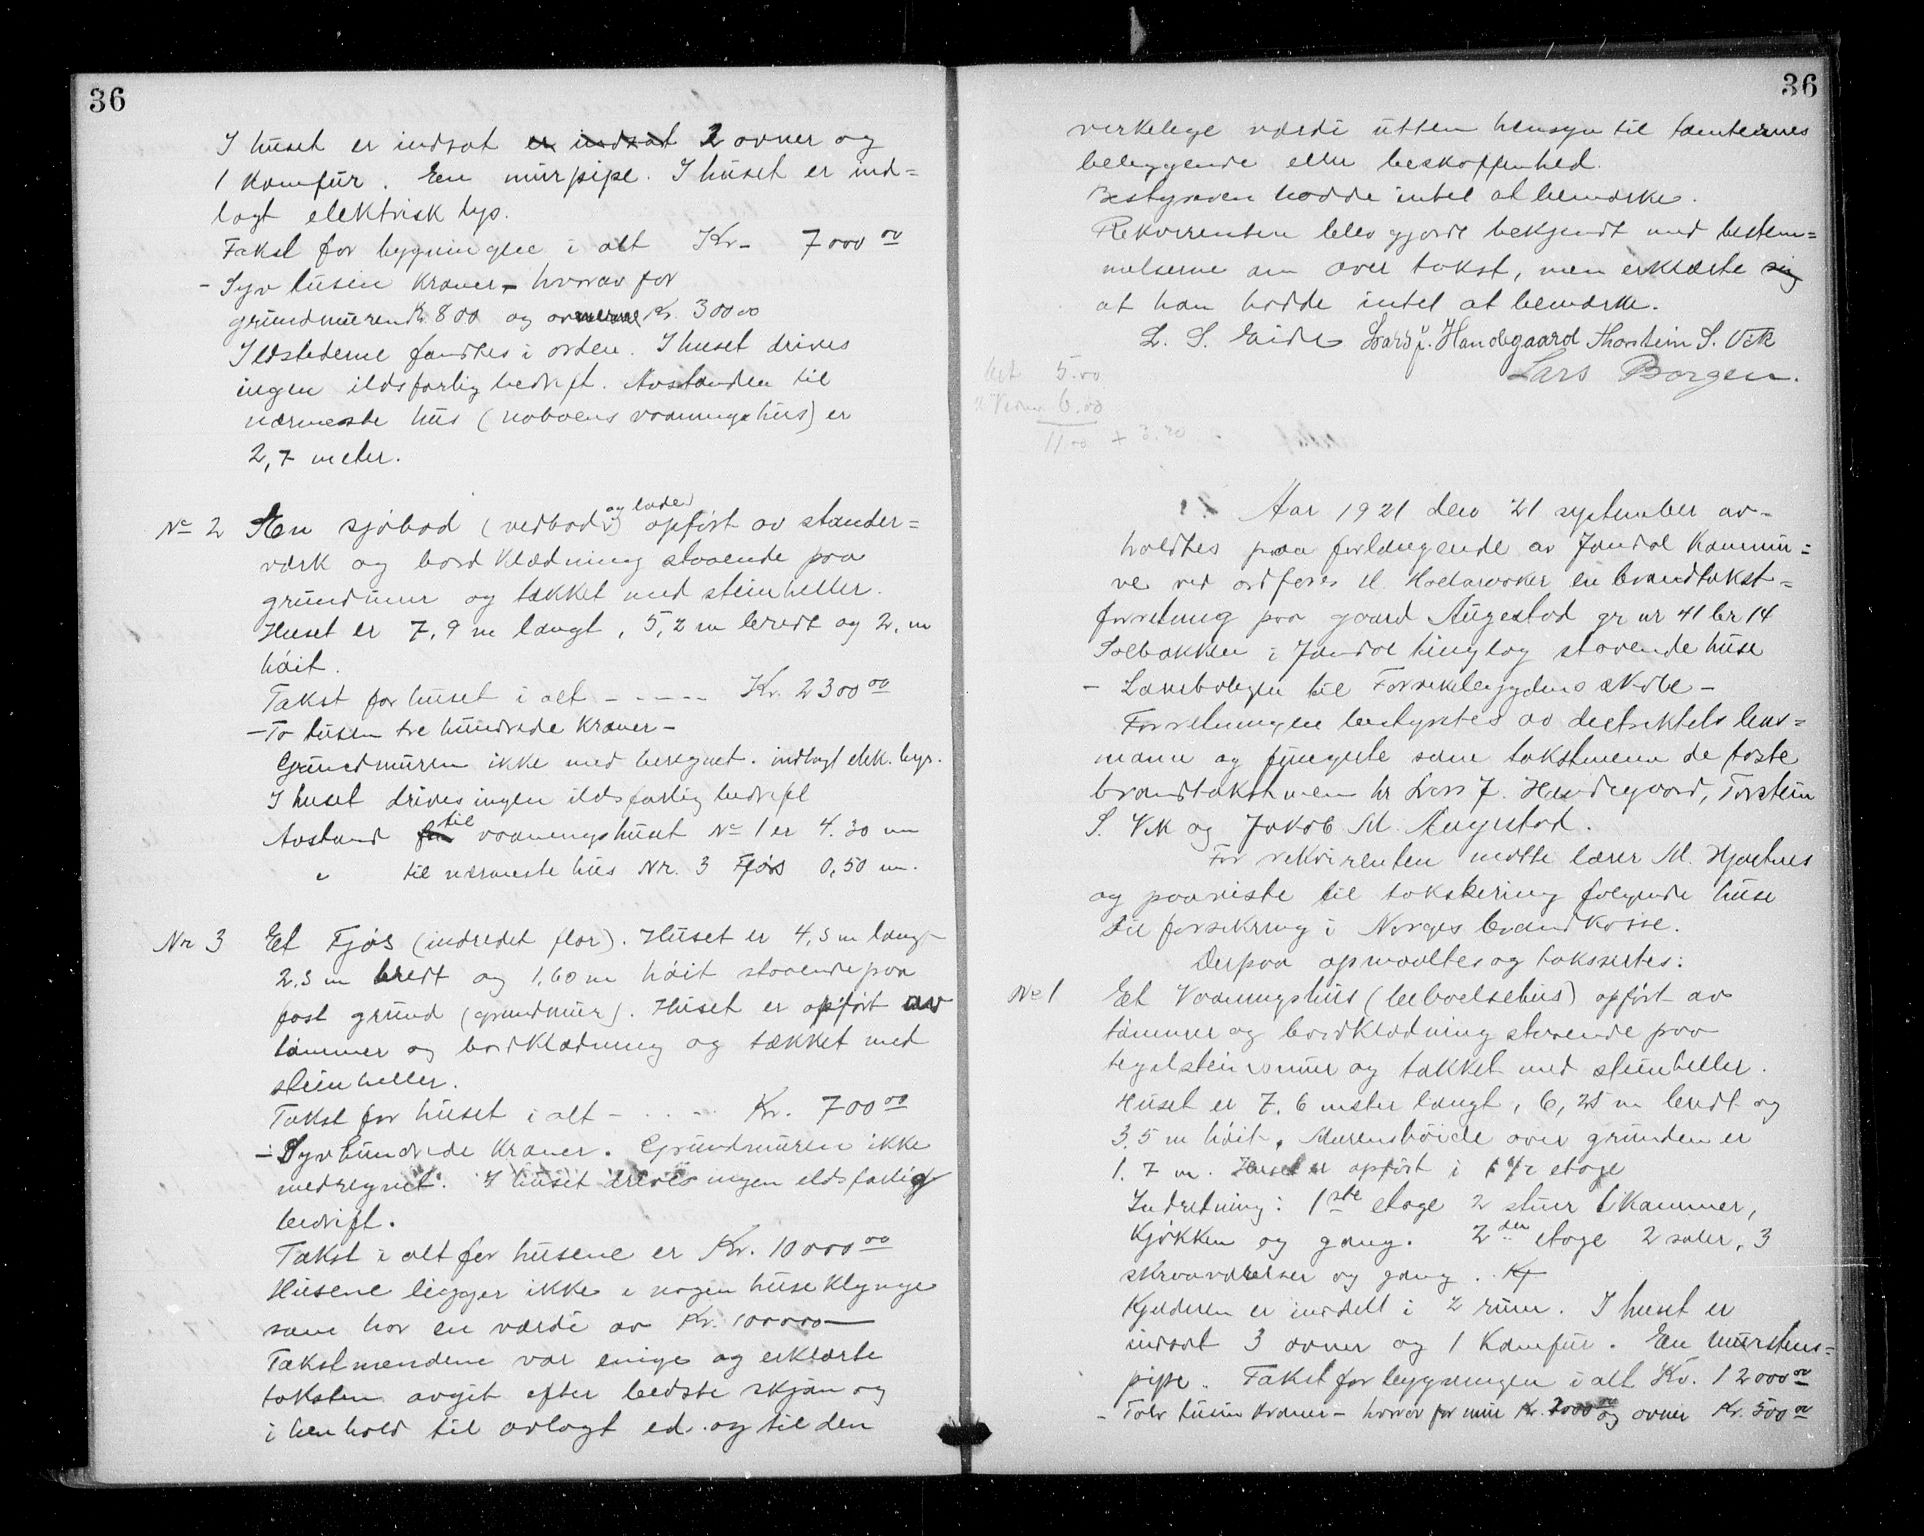 36
I huset er indsat er indsat 2 ovner og
1 Komfur. En murpipe. I huset er ind=
lagt elektrisk lys.
Takst for bygningen i alt Kr- 7000 00
- Syv tusin kroner - hvorav for
grundmuren Kr. 800 og ovnerne Kr. 300 00
Ildstederne fandtes i orden. I huset drives
ingen ildsfarlig bedrift. Avstanden til
nærmeste hus (naboens vaaningshus) er
2,7 meter.
No 2 En sjøbod (vedbod og lade) opført av stander=
værk og bord klædning staaende paa
grundmur og tækket med steinheller.
Huset er 7,9 m langt, 5,2 m bredt og 2, m
høit.
Takst for huset i alt - - - - - Kr. 2300 00
- To tusen tre hundrede kroner -
Grundmuren ikke med beregnet. indlagt elek. lys.
I huset drives ingen ildsfarlig bedrift
Avstand fra til vaaningshuset No 1 er 4.30 m
" til nærmeste hus Nr. 3 Fjøs 0,50 m.
Nr 3 Et Fjøs (indredet flor). Huset er 4,3 m langt
2,3 m bredt og 1,60 m høit staaende paa
fast grund (grundmur). Huset er opført av
tømmer og bordklædning og tækket med
steinheller.
Takst for huset i alt - . . . - Kr. 700 00
- Syvhundrede kroner. Grundmuren ikke
medregnet. I huset drives ingen ildsfarlig
bedrift.
Takst i alt for husene er Kr. 10000 00
Husene ligger ikke i nogen huseklynge
som har en værdi av Kr. 100000 -
Takstmændene var enige og erklærte
taksten avgit efter bedste skjøn og
i henhold til avlagt ed. og til den
36
verkelege værdi utten hensyn til tomternes
beliggende eller beskaffenhed.
Bestyreren hadde intet at bemærke.
Rekvirenten blev gjordt bekjendt med bestem=
melserne om over takst, men erklærte sig
at han hadde intet at bemærke.
L. S. Eide Lars J. Handegaard Thorstein S. Vik
Lars Borgen.
5.00
6.00
11 00 + 3.20
Aar 1921 den 21 september av-
holdtes paa forlangende av Jondal Kommu=
ne ved ordfører H. en brandtakst-
forretning paa gaard Augestad gr nr 41 br 14
Solbakken i Jondal tinglag staaende huse
- Lærerboligen til skole -
Forretningen bestyrtes av distriktets lens=
mann og fungerte som takstmenn de faste
brandtakstmen hr Lars J. Handegaard, Torstein
S. Vik og Jakob M. Augestad.
For rekvirenten møtte lærer M. Hjartnes
og paaviste til taksering følgende huse
til forsikring i Norges brandkasse.
Derpaa opmaaltes og taksertes:
No 1 Et Vaaningshus (beboelsehus) opført av
tømmer og bordklædning staaende paa
teglsteinsmur og tækket med steinheller.
Huset er 7,6 meter langt, 6,25 m bredt og
3,5 m høit. Murens høide over grunden er
1.7 m. Huset er opført i 1 1/2 etage
Indretning: 1ste etage 2 stuer 1 Kammer,
Kjøkken og gang. 2den etage 2 saler, 3
skraaværelser og gang. Kj
Kjelderen er inddelt i 2 rum. I huset er
indsat 3 ovner og 1 Komfur. En murstens=
pipe. Takst for bygningen i alt Kr. 12000 00
- Tolv tusin kroner - hvorav for mur Kr. 2000 00 og ovner Kr. 500 00